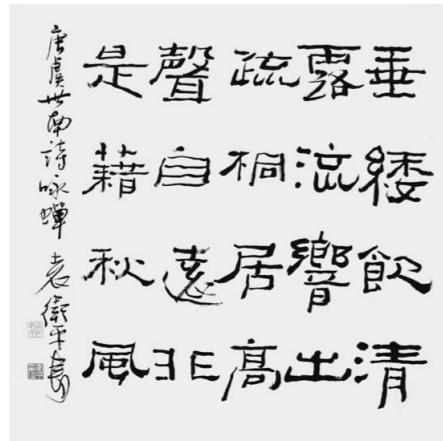 垂緌飲清
露流響出
疏桐居高
聲自遠非
是藉秋風
唐虞世南詩咏蟬 袁衛平書